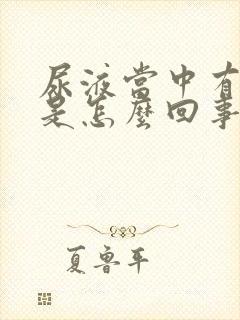 尿液當中有
是怎麼回事
夏魯平